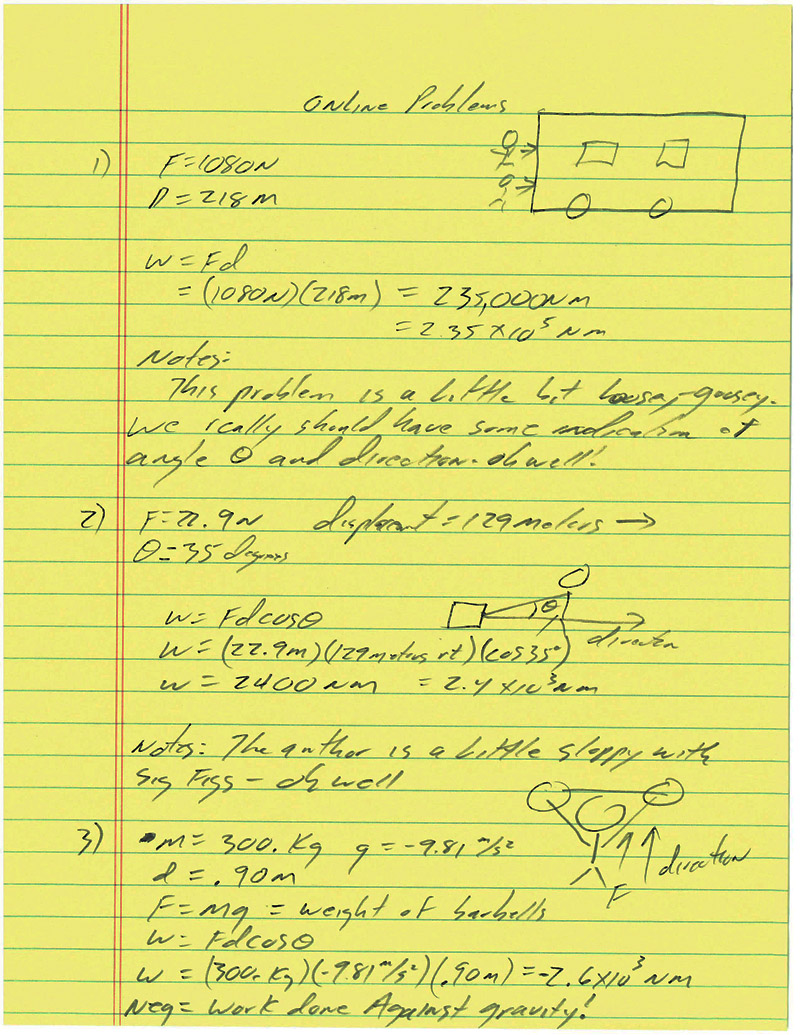 Online Problems
1) F=1080N
D=218M
W=Fd
=(1080N)(218m) = 235,000Nm
=2.35×10⁵ Nm
Notes:
This problem is a little bit loosey-goosey.
We really should have some indication of
angle θ and direction-oh well!
2) F=22.9N displacent=129meters →
θ=35 degrees
θ
W=Fdcosθ
direction
W=(22.9m)(129meters rt)(cos35°)
W=2400Nm =2.4×10³Nm
Notes: The author is a little sloppy with
Sig Figs-oh well
3) M=300. Kg g=-9.81 m/s²
d=.90m direction
F
F=Mg=weight of barbells
W=Fdcosθ
W=(300. Kg)(-9.81 m/s²)(.90m)=-2.6×10³ Nm
Neg=Work done Against gravity!